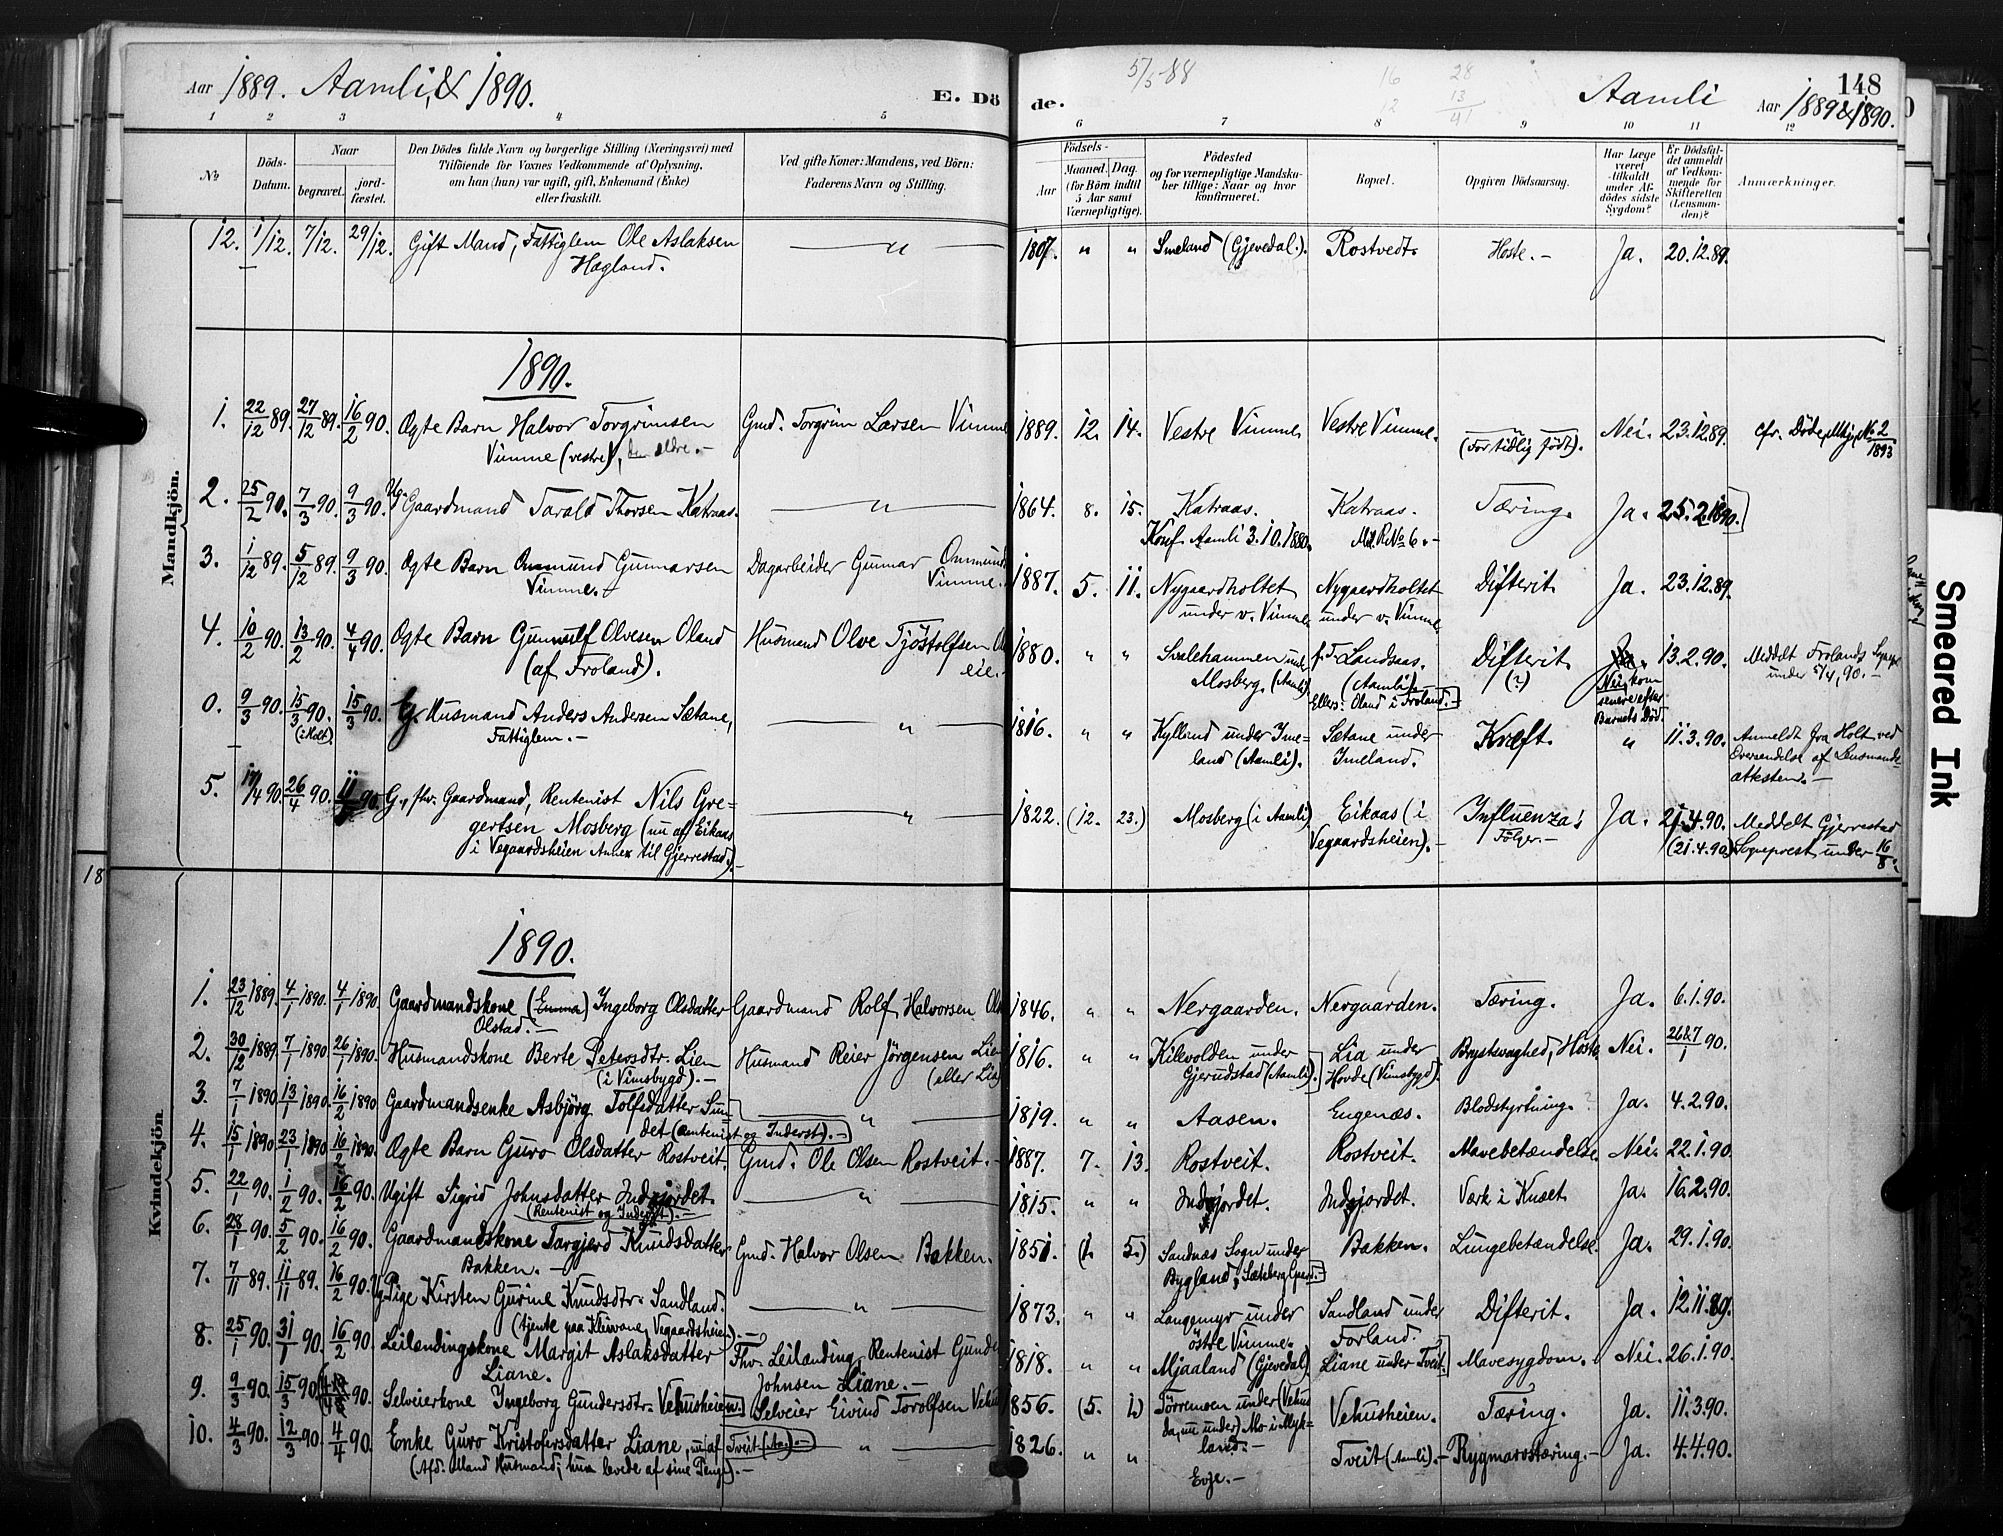 Aar 1889. Aamli, & 1890. E. Dö
de. 5/5 88 16 12 28 13 41 Aamli Aar 1889 & 1890. 148
1 2 3 4 5 6 7 8 9 10 11 12
No.
Döds-Datum.
Naar
begravet.
jord-fæstet.
Den Dödes fulde Navn og borgerlige Stilling (Næringsvei) med
Tilföiende for Voxnes Vedkommende af Oplysning,
om han (hun) var ugift, gift, Enkemand (Enke)
eller fraskilt.
Ved gifte Koner: Mandens, ved Börn:
Faderens Navn og Stilling.
Födsels-
Aar
Maaned. Dag.
(for Börn indtil
5 Aar samt
Værnepligtige).
Födested
og for værnepligtige Mandsku-
ber tillige: Naar og hvor
konfirmeret.
Bopæl.
Opgiven Dödsaarsag.
Har Læge
været
tilkaldt
under Af-
dödes sidste
Sygdom?
Er Dödsfal-
det anmeldt
af Vedkom-
mende for
Skifteretten
(Lensman-
den)?
Anmærkninger.
Mandkjön.
12. 1/12. 7/12. 29/12. Gift Mand, Fattiglem Ole Aslaksen — " — 1807. " " Smeland (Gjevedal). Rostvedt. Hoste. – Ja. 20.12.89.
Hagland.
1890.
1. 22/12 89. 27/12 89. 16/2 90. Ægte Barn Halvor Torgrimsen Gmd. Torgrim Larsen Vimme 1889. 12. 14. Vestre Vimme. Vestre Vimme. " Nei. 23.12.89. cfr. Döde, Mkj. No. 2/1893
Vimme (vestre), den eldre. – (For tidlig födt).
2. 25/2 90. 7/3 90. 9/3 90. Ug. Gaardmand Tarald Thorsen Katraas. — " — 1864. 8. 15. Katraas. Katraas. Tæring. Ja. 25.2.1890.
Konf. Aamli 3.10.1880. Mil. R. No 6. –
3. 1/12 89. 5/12 89. 9/3 90. Ægte Barn Ommund Gunnarsen Dagarbeider Gunnar Ommunds 1887. 5. 11. Nygaardholtet Nygaardholtet Difterit Ja. 23.12.89.
Vimme. – Vimme. under v. Vimme under v. Vimme
4. 10/2 90. 13/2 90. 4/4 90. Ægte Barn Gunnulf Olvesen Oland Husmand Olve Tjöstolfsen 1880. " " Svalehammen under f. T. Landsaas. Difterit 13.2.90. Meddelt Frolands Sogne
(af Froland). eie. – Mosberg. (Aamli) (Aamli) (?) Nei, kom under 5/4 90. –
Ellers: Oland i Froland. – senere efter
Barnets Död.
0. 9/3 90. 15/3 90. 15/3 90. G. Husmand Anders Andersen Sætane, — " — 1816. " " Kylland under Ime- Sætane under Kræft. " 11.3.90. Anmeldt fra Holt ved
(i Holt). Fattiglem. – land (Aamli). Imeland. Oversendelse af Lensmands-
attesten. –
5. 17/4 90. 26/4 90. 11/5 90. G., fhv. Gaardmand, Rentenist Nils Gre- — " — 1822. (12. 23.) Mosberg (i Aamli) Eikaas (i Influenza's Ja. 21.4.90. Meddelt Gjerrestad
gertsen Mosberg (nu af Eikaas Vegaardsheien). – Fölger. – (21.4.90) Sogneprest under 16/8.
i Vegaardsheien Annex til Gjerrestad). –
18
Kvindekjön
1890.
1. 23/12 1889. 4/1 1890. 4/1 1890. Gaardmandskone (Emma) Ingeborg Olsdatter Gaardmand Rolf Halvorsen Ols 1846. " " Nergaarden. Nergaarden. Tæring. Ja. 6.1.90.
Olstad. –
2. 30/12 1889. 7/1 1890. 26/1 1890. Husmandskone Berte Petersdtr. Lien Husmand Reier Jörgensen Lien 1816. " " Kilevolden under Lia under Brystsvaghed, Hoste Nei. 26&7/1 90.
(i Vimsbygd). – (eller Lia) Gjerudstad (Aamli). Hovde (Vimsbygd).
3. 7/1 1890. 13/1 1890. 16/2 1890 Gaardmandsenke Asbjörg Tolfsdatter Sun- — " — 1819. " " Aasen. Engenæs. Blodstyrtning? Ja. 4.2.90.
det (Rentenist og Inderst). –
4. 15/1 1890. 23/1 1890. 16/2 1890. Ægte Barn Guro Olsdatter Rostveit. Gmd. Ole Olsen Rostveit. – 1887. 7. 13. Rostveit. Rostveit. Mavebetændelse. Nei. 22.1.90.
5. 22/1 90. 1/2 90. 16/2 90. Ugift Sigrid Johnsdatter Indgjordet — " — 1815. " " Indgjordet. Indgjordet. Værk i Knæet Ja. 16.2.90.
(Rentenist og Inderst). –
6. 28/1 90. 5/2 90. 16/2 90. Gaardmandskone Targjerd Knudsdatter Gmd. Halvor Olsen Bakken. 1851. (1. 5.) Sandnæs Sogn under Bakken. Lungebetændelse. Ja. 29.1.90.
Bakken. – Bygland, Sæteberg Gaard. –
7. 7/11 89. 11/11 89. 16/2 90. Ug. Pige Kirsten Gurine Knudsdtr. Sandland. — " — 1873. " " Langemyr under Sandland under Difterit. Ja. 12.11.89.
(tjente paa Kleivane, Vegaardsheien). – östre Vimme. Forland.
8. 25/1 90. 31/1 90. 16/2 90. Leilendingskone Margit Aslaksdatter Fhv. Leilending, Rentenist Gunde 1818. " " Mjaaland (Gjevedal) Liane under Tveit. Mavesygdom. Nei. 26.1.90.
Liane. Johnsen Liane. –
9. 9/3 90. 15/3 90. 90. Selveierkone Ingeborg Gundersdtr. Vehusheien. Selveier Eivind Torolfsen Vehus 1856. (5. 1.) Törremoen under (Vehus Vehusheien. Tæring. Ja. 11.3.90.
da, nu under) Mo i Myk-
land. –
10. 4/3 90. 12/3 90. 4/4 90. Enke Guro Kristofersdatter Liane, nu af Tveit (Aa.) – " — 1826. " " Evje. – Tveit (Aamli). – Rygmarvstæring. – Ja. 4.4.90.
(Afd. Mand Husmand; hun levede af sine Penge). –
Smeared Ink